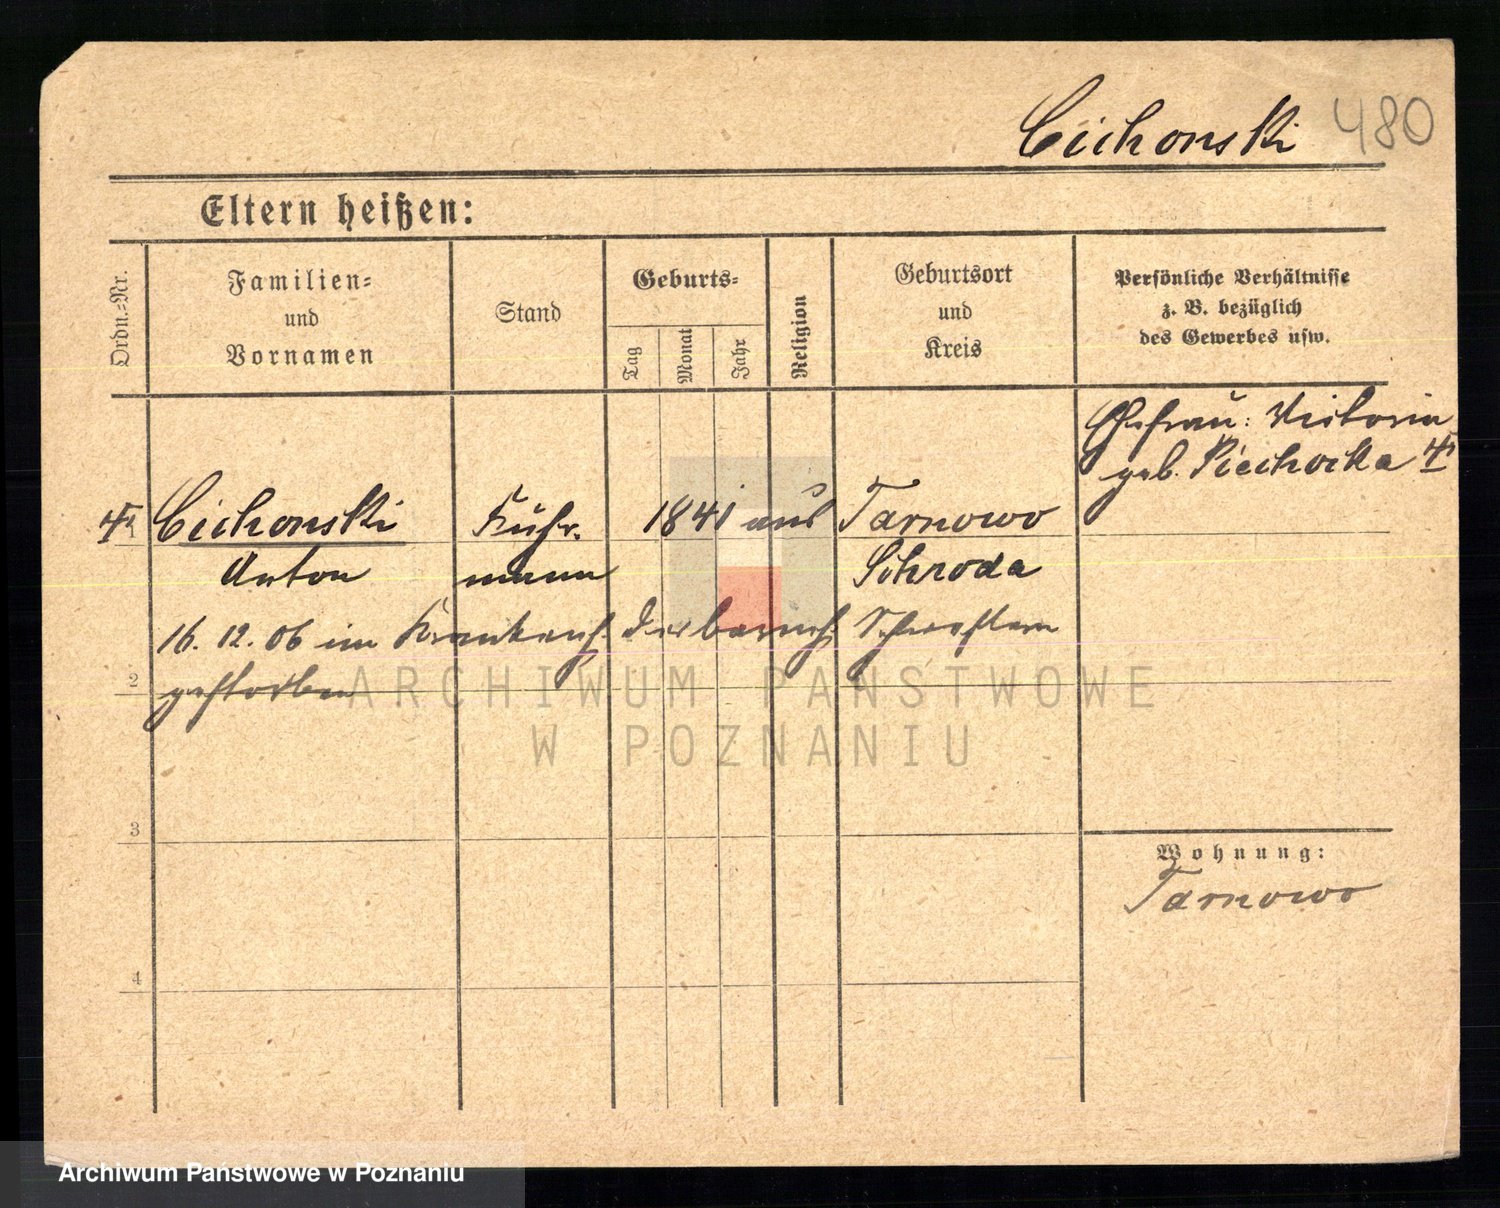 Cichonski 480
Eltern heißen:
Ordn.-Nr.
Familien-
und
Vornamen
Stand
Geburts-
Tag
Monat
Jahr
Religion
Geburtsort
und
Kreis
Persönliche Verhältnisse
z. B. bezüglich
des Gewerbes usw.
Ehefrau: Victoria
geb. Piechocka
Cichonski Fuhr- 1841 aus Tarnowo
Anton mann Schroda
16. 12. 06 im
gestorben
2
ARCHIWUM PAŃSTWOWE
W POZNANIU
3
Wohnung:
Tarnowo
4
Archiwum Państwowe w Poznaniu